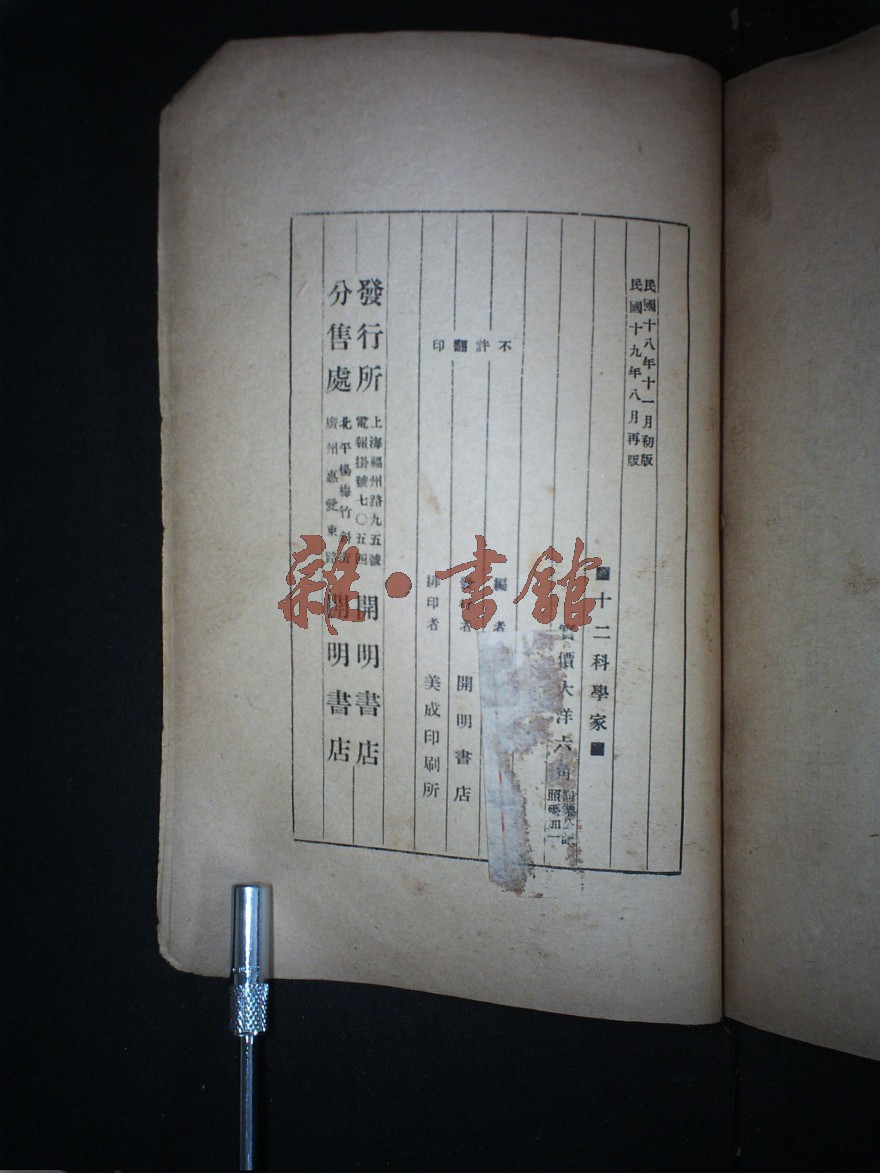 民國十八年十一月初版
民國十九年八月再版
十二科學家
實價大洋六角
不許翻印
編者
發行者 開明書店
排印者 美成印刷所
發行所 上海福州路九五號 電報掛號七〇五四 開明書店
分售處 北平楊梅竹斜街 廣州惠愛東路 開明書店
雜·書館